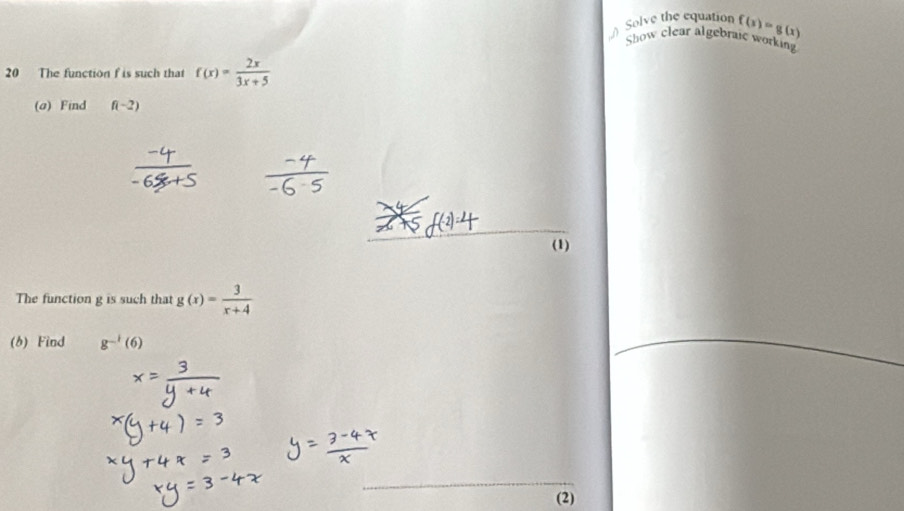 Solve the equation f(x) = g(x)
Show clear algebraic working
20 The function f is such that f(x) = 2x/(3x + 5)
(a) Find f(-2)
-4/(-6 + 5) -4/(-6 - 5)
f(-2)=4
(1)
The function g is such that g(x) = 3/(x + 4)
(b) Find g⁻¹(6)
x = 3/(y + 4)
x(y + 4) = 3
xy + 4x = 3
xy = 3 - 4x
y = (3 - 4x)/x
(2)